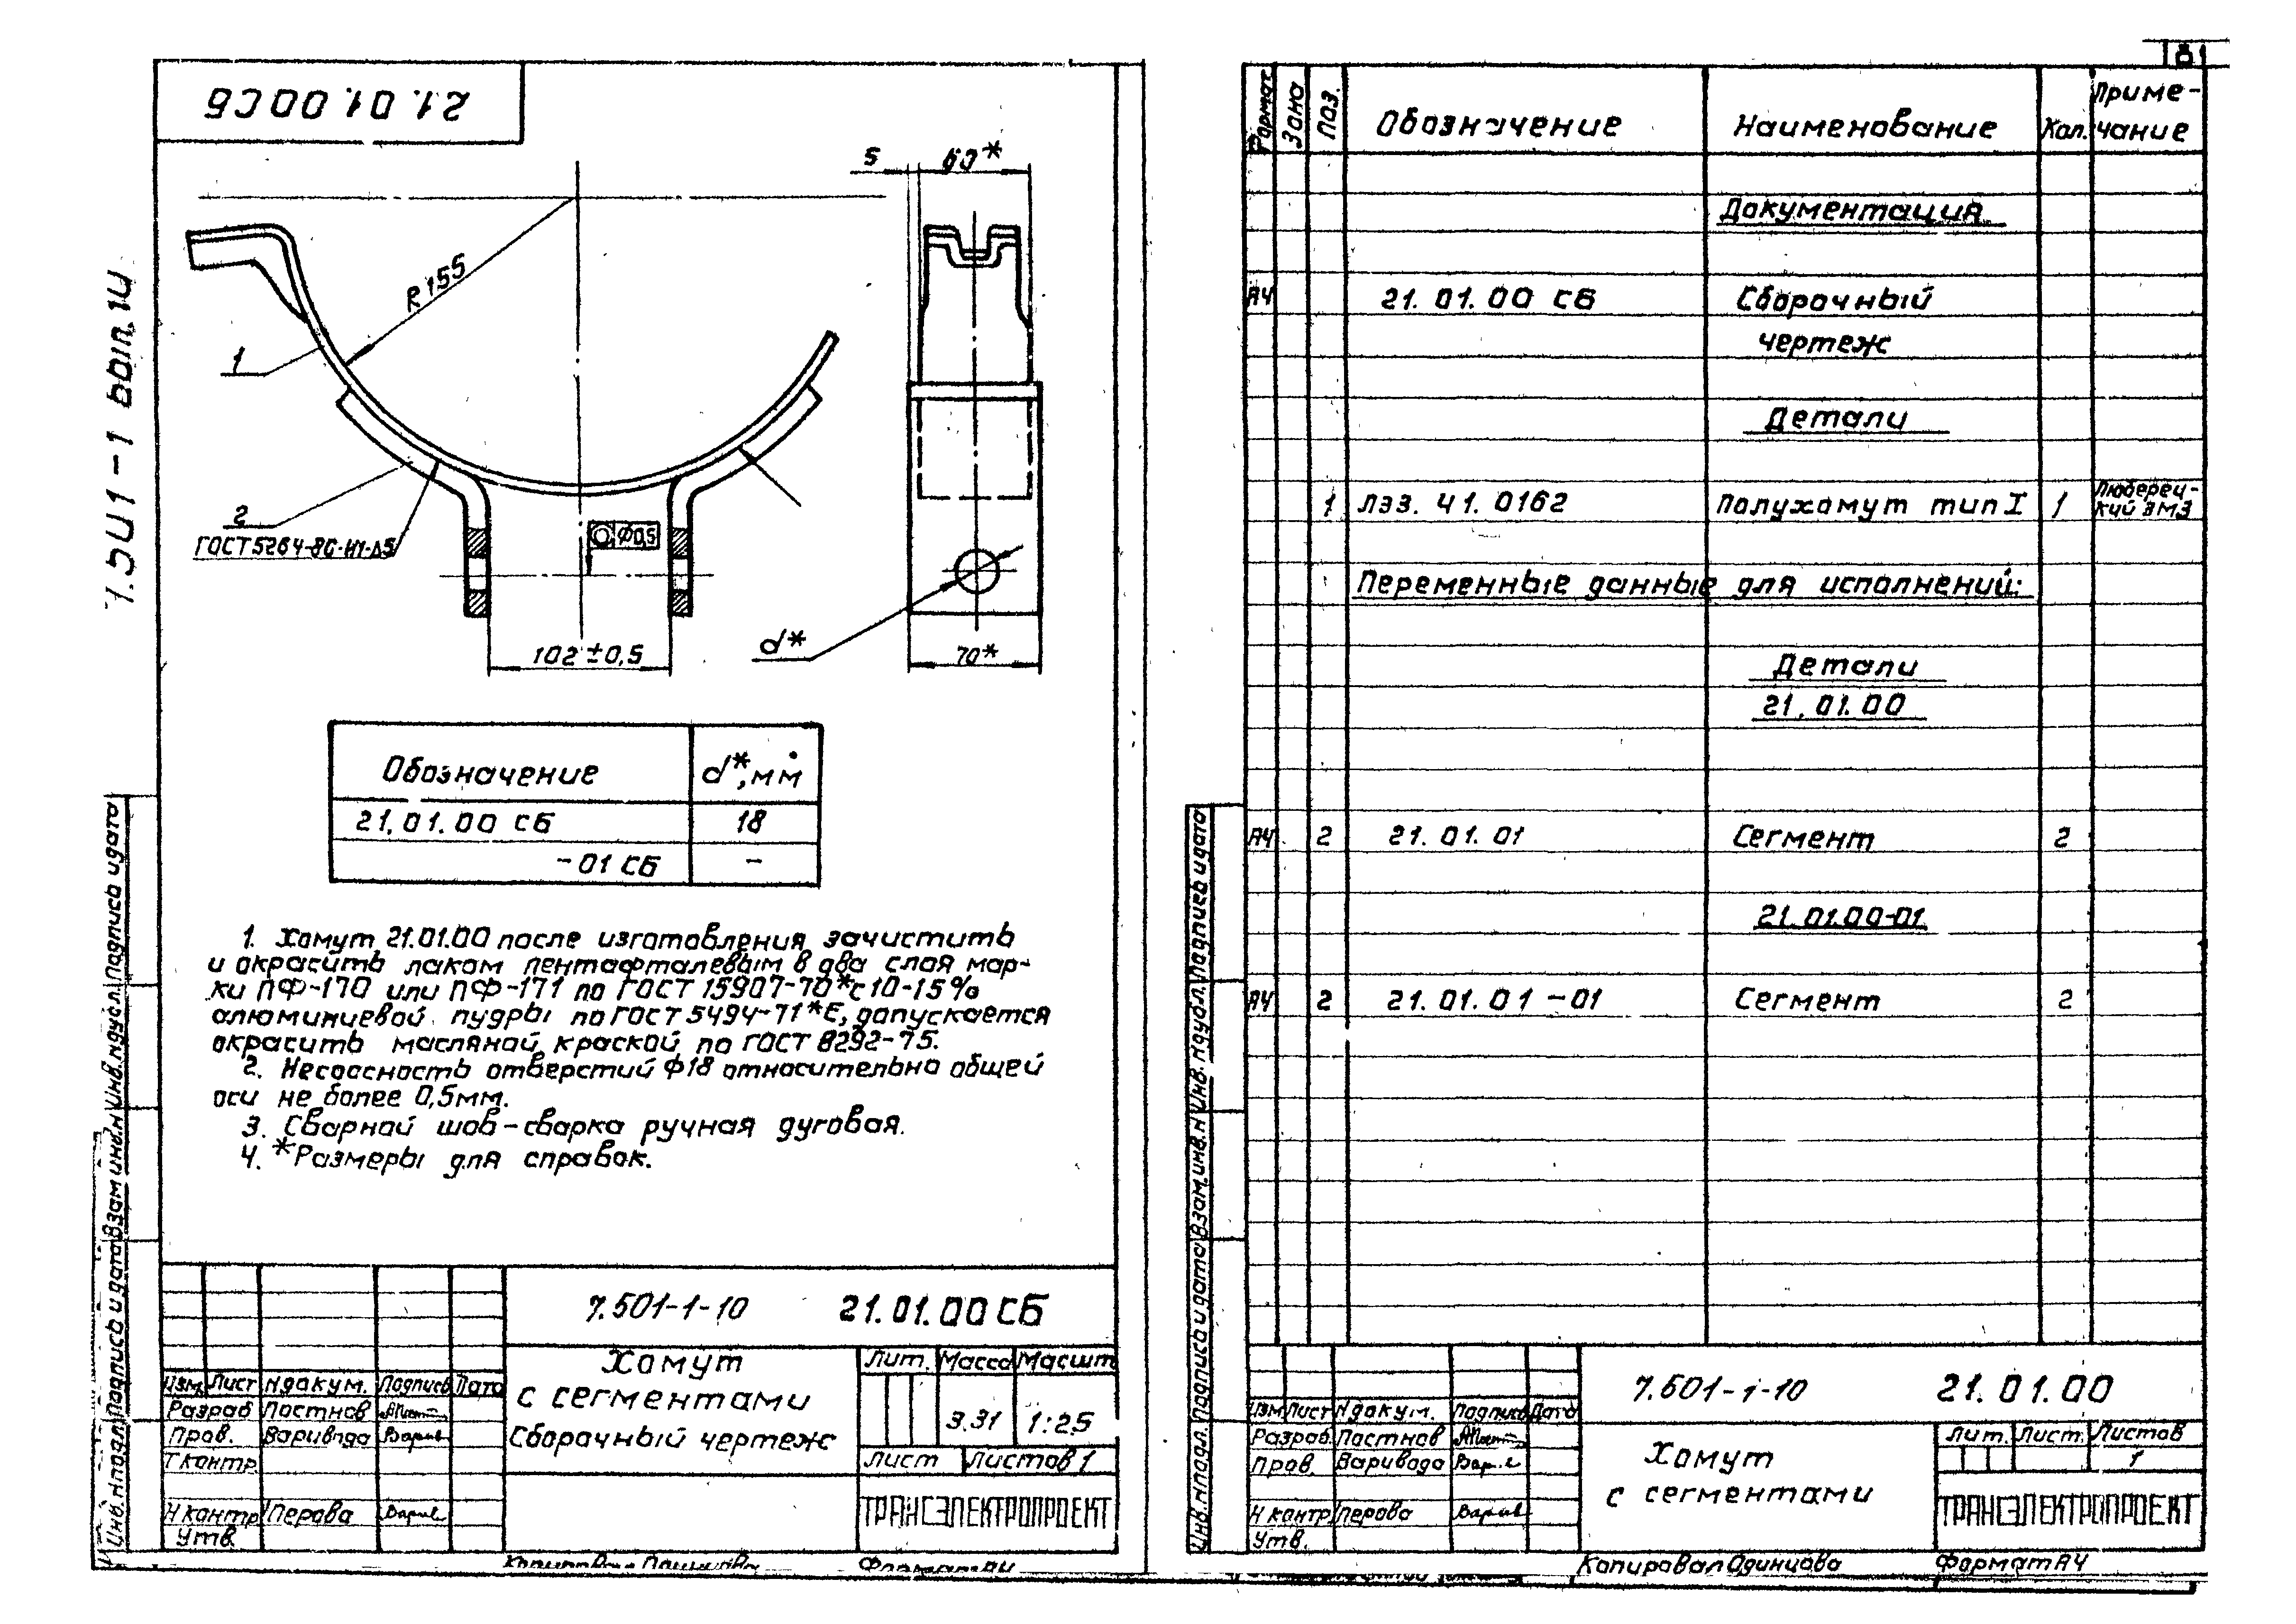 21.01.00СБ
7.501-1 вып.10
5
60*
R155
1
2
ГОСТ 5264-80-Н1-Δ5
⌀0,5
102±0,5
d*
70*
Обозначение
d*,мм
21.01.00 СБ
18
-01 СБ
–
1. Хомут 21.01.00 после изготовления зачистить
и окрасить лаком пентафталевым в два слоя мар-
ки ПФ-170 или ПФ-171 по ГОСТ 15907-70* с 10-15%
алюминиевой пудры по ГОСТ 5494-71*Е, допускается
окрасить масляной краской по ГОСТ 8292-75.
2. Несоосность отверстий ф18 относительно общей
оси не более 0,5мм.
3. Сварной шов-сварка ручная дуговая.
4. *Размеры для справок.
Инв.Nподл. Подпись и дата Взам.инв.N Инв.Nдубл. Подпись и дата
7.501-1-10 21.01.00СБ
Хомут
с сегментами
Сборочный чертеж
Лит. Масса Масшт
3.31 1:2,5
Лист Листов 1
ТРАНСЭЛЕКТРОПРОЕКТ
Изм. Лист Nдокум. Подпись Дата
Разраб Постнов
Пров. Варивода
Т контр.
Н контр. Перова
Утв.
Формат А4
81
Формат Зона Поз. Обозначение Наименование Кол. Приме-
чание
Документация
А4 21.01.00 СБ Сборочный
чертеж
Детали
1 ЛЭЗ.41.0162 Полухомут тип I 1 Люберец-
кий ЭМЗ
Переменные данные для исполнений:
Детали
21.01.00
А4 2 21.01.01 Сегмент 2
21.01.00-01
А4 2 21.01.01-01 Сегмент 2
Инв.Nподл. Подпись и дата Взам.инв.N Инв.Nдубл. Подпись и дата
7.501-1-10 21.01.00
Хомут
с сегментами
Лит. Лист. Листов
1
ТРАНСЭЛЕКТРОПРОЕКТ
Изм Лист Nдокум. Подпись Дата
Разраб. Постнов
Пров. Варивода
Н контр. Перова
Утв.
Копировал Одинцова Формат А4